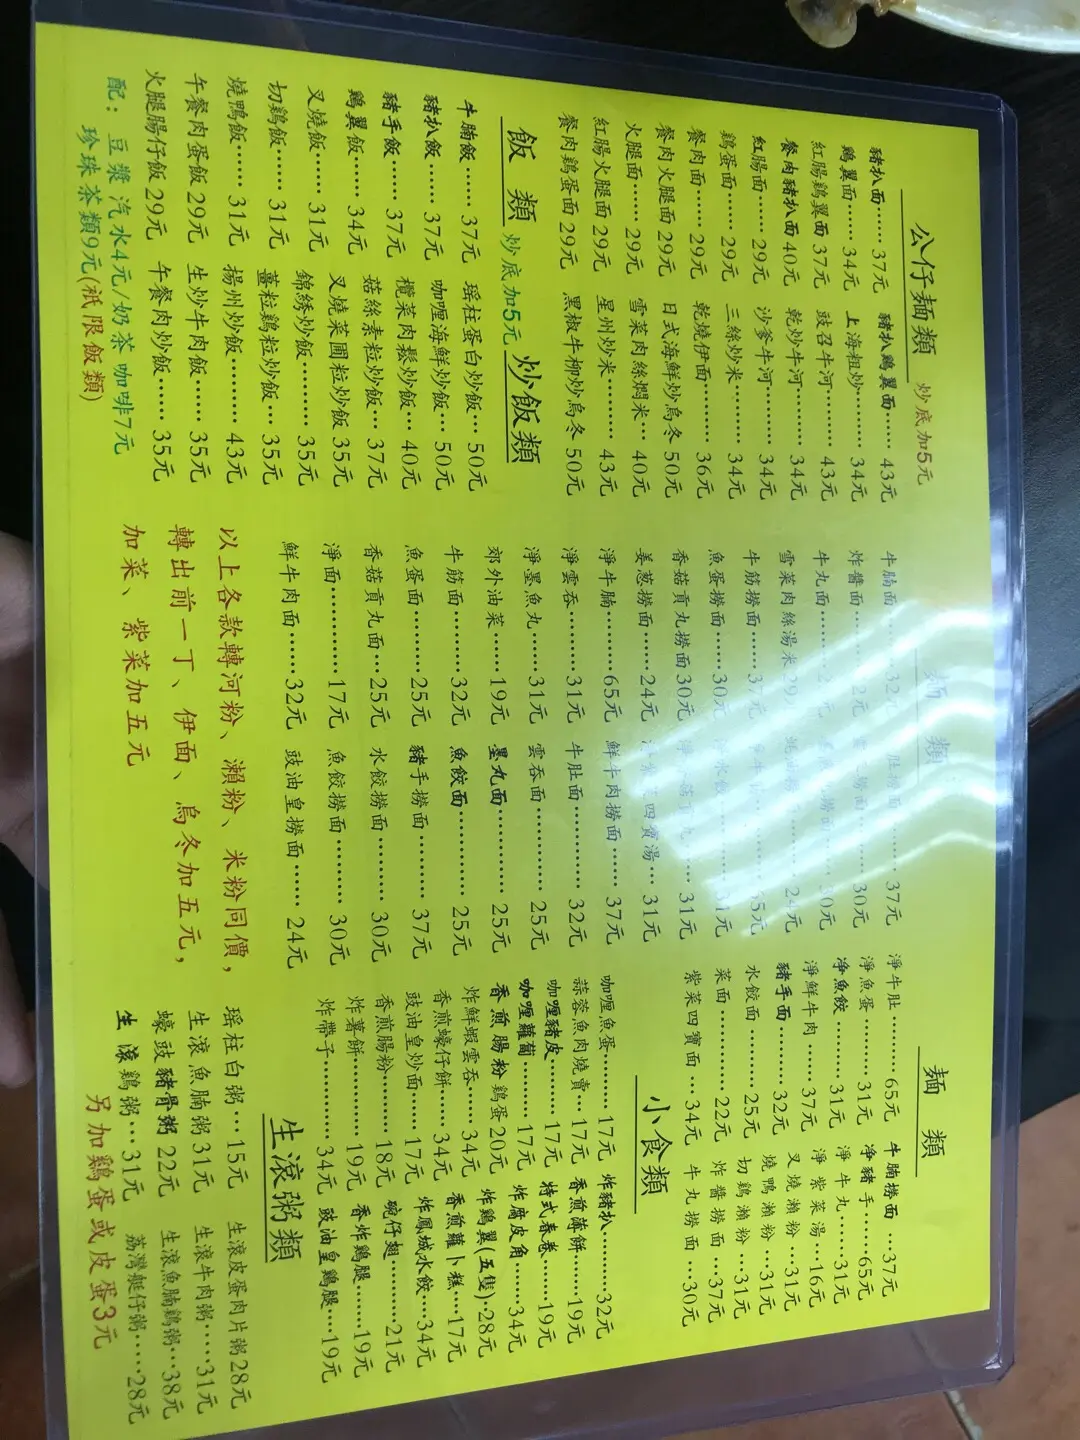 公仔麵類 炒底加5元
豬扒面……37元 豬扒鷄翼面……43元
鷄翼面……34元 上海粗炒……34元
紅腸鷄翼面 37元 豉召牛河……43元
餐肉豬扒面 40元 乾炒牛河……34元
紅腸面……29元 沙爹牛河……34元
鷄蛋面……29元 三絲炒米……34元
餐肉面……29元 乾燒伊面……36元
餐肉火腿面 29元 日式海鮮炒烏冬 50元
火腿面……29元 雪菜肉絲燜米…40元
紅腸火腿面 29元 星州炒米……43元
餐肉鷄蛋面 29元 黑椒牛柳炒烏冬 50元
飯類 炒底加5元 炒飯類
牛腩飯……37元 瑶柱蛋白炒飯…50元
豬扒飯……37元 咖喱海鮮炒飯…50元
豬手飯……37元 欖菜肉鬆炒飯…40元
鷄翼飯…34元 菇絲素粒炒飯…37元
叉燒飯……31元 叉燒菜圃粒炒飯 35元
切鷄飯……31元 錦綉炒飯……35元
燒鴨飯……31元 薑粒鷄粒炒飯…35元
午餐肉蛋飯 29元 揚州炒飯……43元
火腿腸仔飯 29元 生炒牛肉飯……35元
午餐肉炒飯……35元
配：豆漿 汽水4元/奶茶 咖啡7元
珍珠茶類9元(祇限飯類)
麵類
牛腩面……32元 37元
炸醬面 30元
牛丸面
雪菜肉絲湯米 24元
牛筋撈面……37元
魚蛋撈面……30元
香菇貢丸撈面30元 31元
姜葱撈面……24元 四寶湯…31元
淨牛腩……65元 鮮牛肉撈面……37元
淨雲吞……31元 牛肚面……32元
淨墨魚丸……31元 雲吞面……25元
郊外油菜……19元 墨丸面……25元
牛筋面……32元 魚餃面……25元
魚蛋面……25元 豬手撈面……37元
香菇貢丸面…25元 水餃撈面……30元
淨面……17元 魚餃撈面……30元
鮮牛肉面……32元 豉油皇撈面……24元
以上各款轉河粉、瀨粉、米粉同價，
轉出前一丁、伊面、烏冬加五元，
加菜、紫菜加五元
麵類
淨牛肚……65元 牛腩撈面…37元
淨魚蛋……31元 淨豬手……65元
净魚餃……31元 淨牛丸……31元
淨鮮牛肉……37元 淨紫菜湯…16元
豬手面……32元 叉燒瀨粉…31元
水餃面……25元 燒鴨瀨粉…31元
菜面……22元 切鷄瀨粉…31元
紫菜四寶面…34元 炸醬撈面…37元
牛丸撈面…30元
小食類
咖喱魚蛋……17元 炸豬扒……32元
蒜蓉魚肉燒賣…17元 香煎薄餅……19元
咖喱豬皮……17元 特式春卷……19元
咖喱蘿蔔……17元 炸腐皮角……34元
香煎腸粉 鷄蛋20元 炸鷄翼(五隻)…28元
炸鮮蝦雲吞…34元 香煎蘿卜糕…17元
香煎蠔仔餅…34元 炸鳳城水餃…34元
豉油皇炒面……17元 碗仔翅……21元
香煎腸粉……18元 香炸鷄腿……19元
炸薯餅……19元 豉油皇鷄腿…19元
炸帶子……34元
生滾粥類
瑶柱白粥…15元 生滾皮蛋肉片粥28元
生滾魚腩粥31元 生滾牛肉粥……31元
蠔豉豬骨粥 22元 生滾魚腩鷄粥…38元
生滾鷄粥…31元 荔灣艇仔粥……28元
另加鷄蛋或皮蛋3元